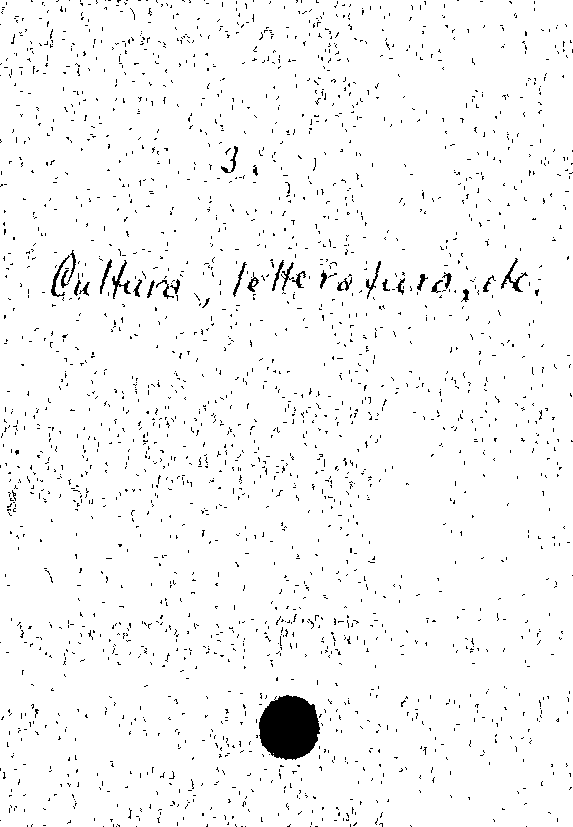 3.
Cultura, letteratura, etc.